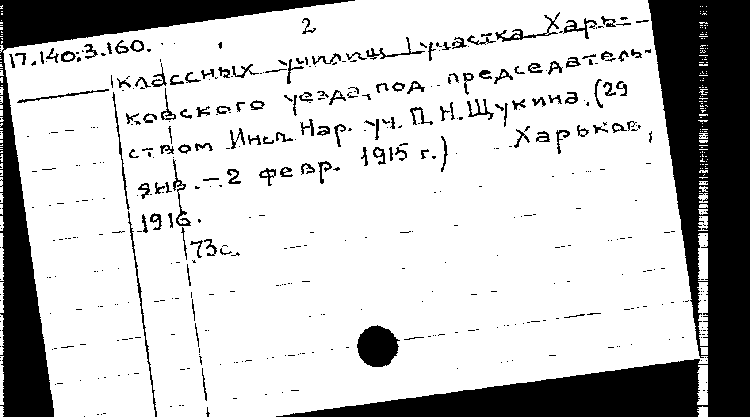 17.140;3.160.
2
классных училищ I участка Харь=
ковского уезда, под председатель-
ством Инсп. Нар. уч. П.Н.Щукина. (29
янв. - 2 февр. 1915 г.) Харьков,
1916.
73с.